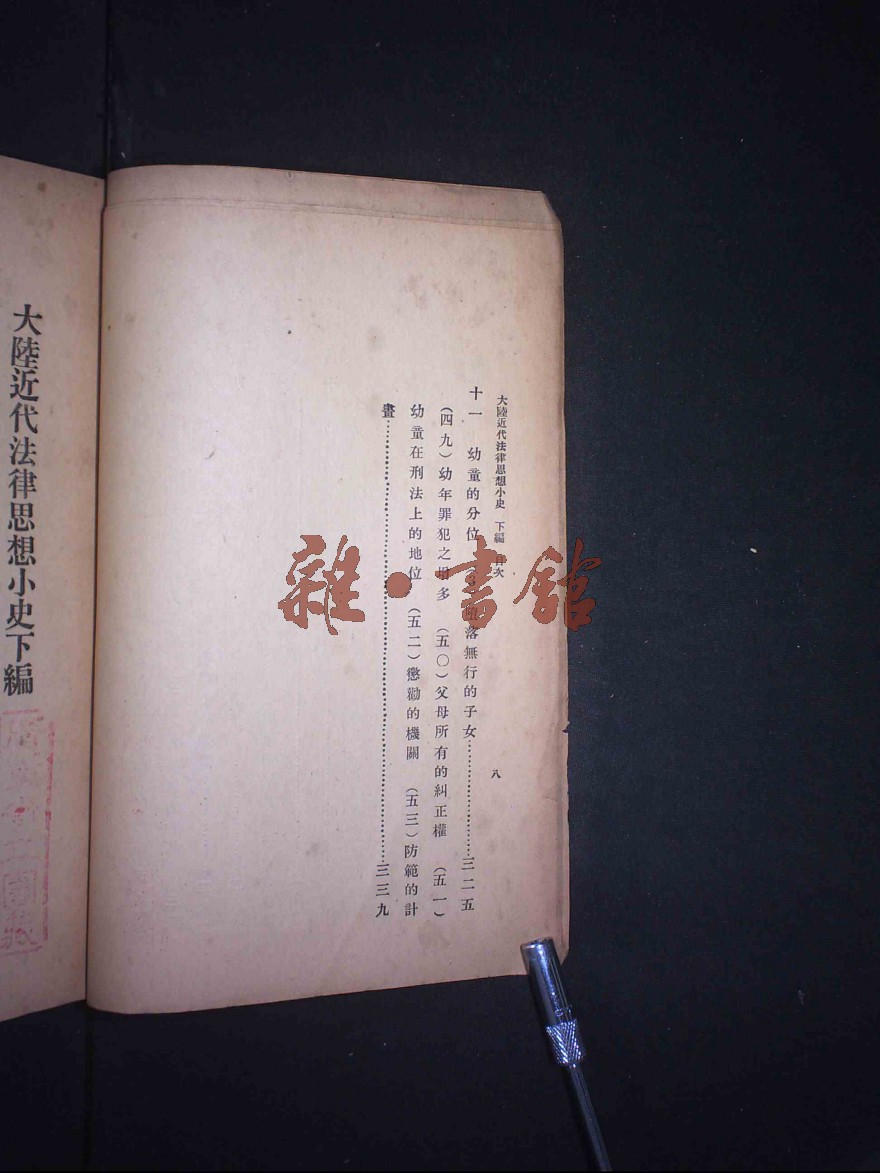 大陸近代法律思想小史 下編 目次 八
十一 幼童的分位 墮落無行的子女……………………三二五
(四九)幼年罪犯之增多 (五〇)父母所有的糾正權 (五一)
幼童在刑法上的地位 (五二)懲勸的機關 (五三)防範的計
畫……………………………………………………三三九
大陸近代法律思想小史下編
雜·書館